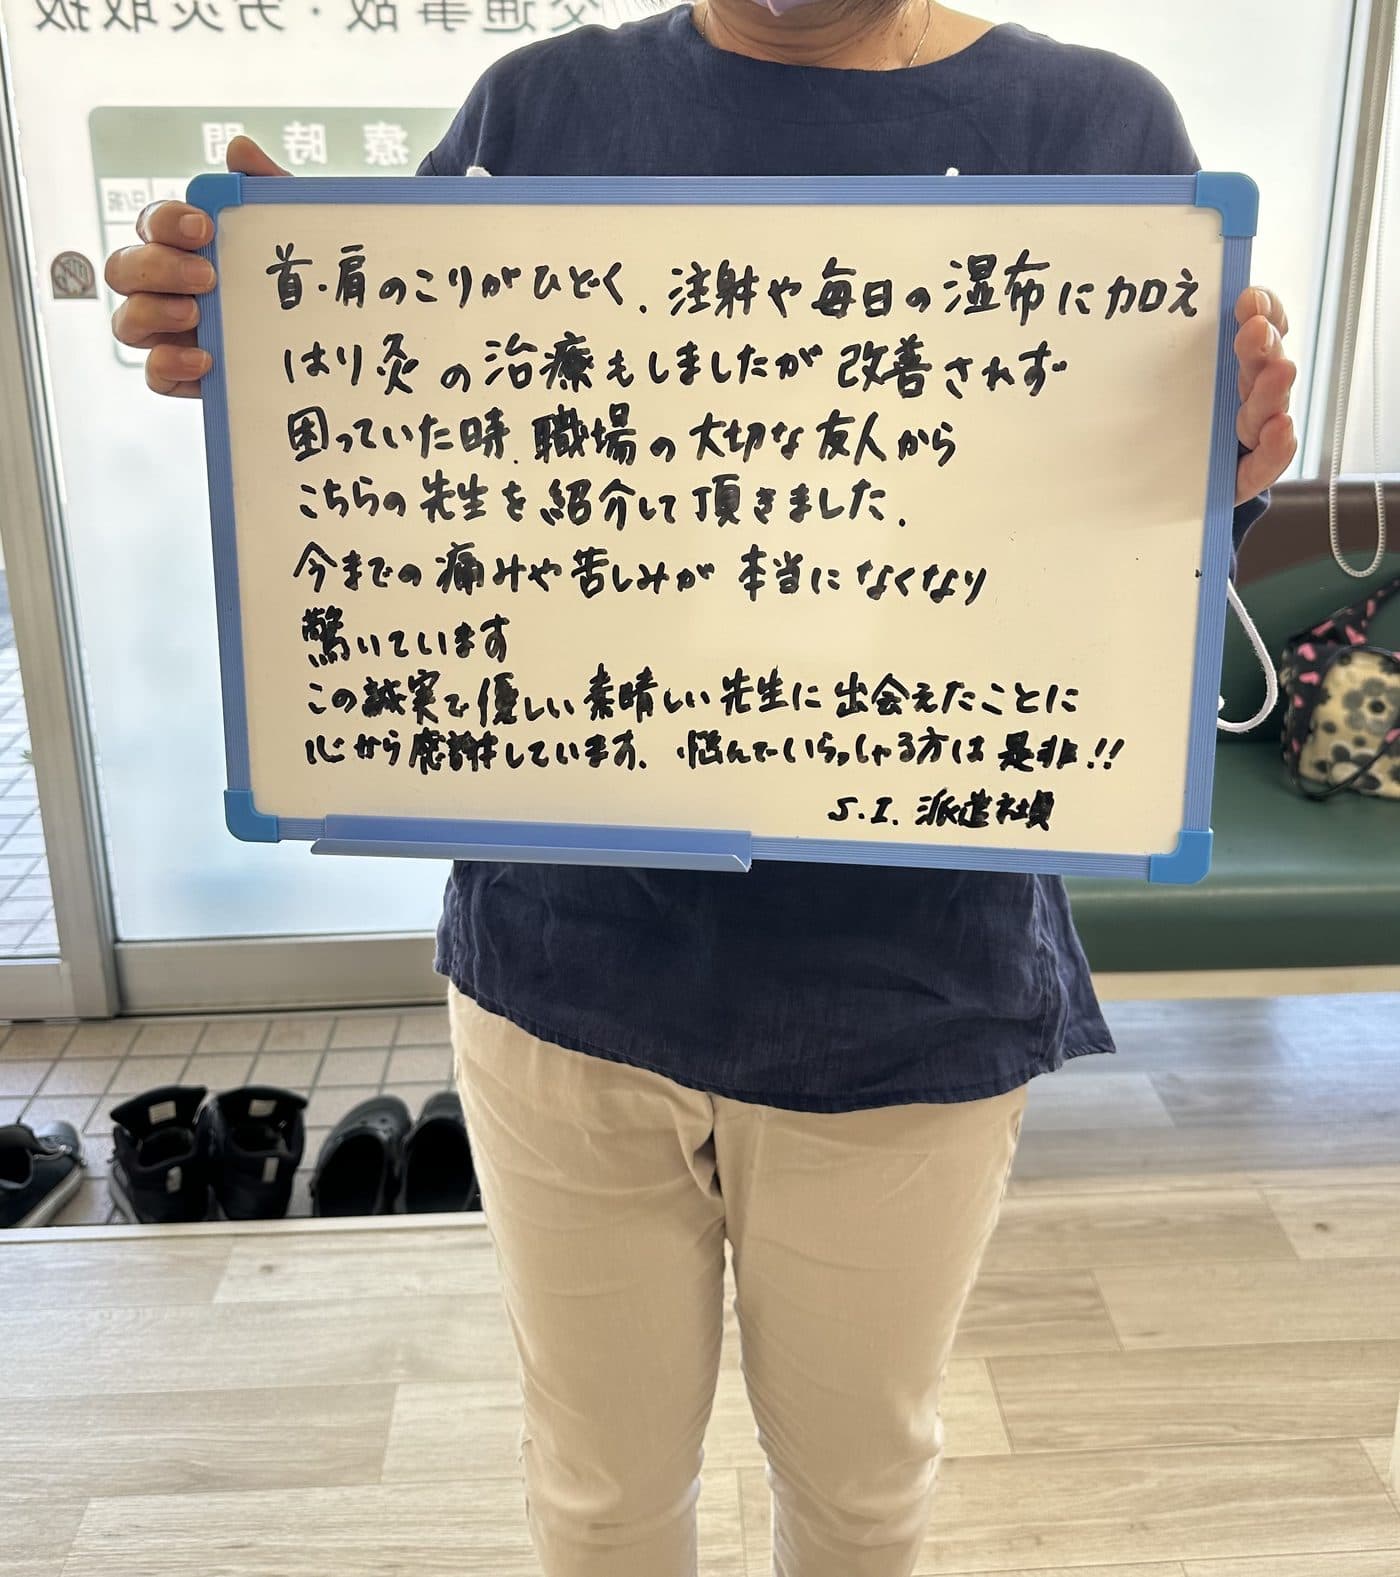 交通事故・労災取扱
療時間
日/祝
首・肩のこりがひどく、注射や毎日の湿布に加え
はり灸の治療もしましたが改善されず
困っていた時、職場の大切な友人から
こちらの先生を紹介して頂きました。
今までの痛みや苦しみが本当になくなり
驚いています
この誠実で優しい素晴しい先生に出会えたことに
心から感謝しています。悩んでいらっしゃる方は是非!!
S.I. 派遣社員